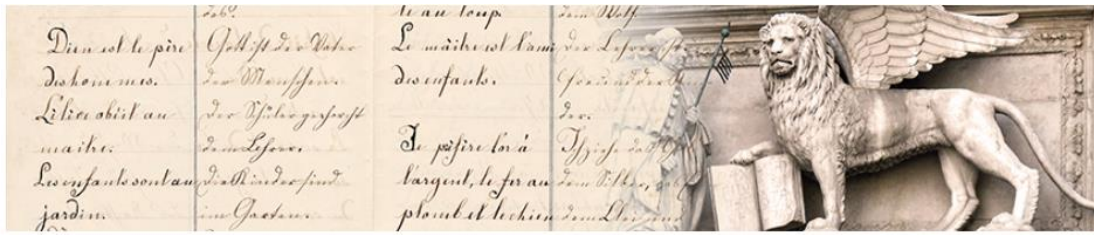 Dieu est le père
des hommes.
L'élève obéit au
maître.
Les enfants sont au
jardin.
Gott ist der Vater
der Menschen.
Der Schüler gehorcht
dem Lehrer.
Die Kinder sind
im Garten.
au loup.
Le maître est l'ami
des enfants.
Je préfère l'or à
l'argent, le fer au
plomb et le chien
dem Wolf.
Der Lehrer ist
Freund der Kin
der.
Ich ziehe das
dem Silber, das
dem Blei und